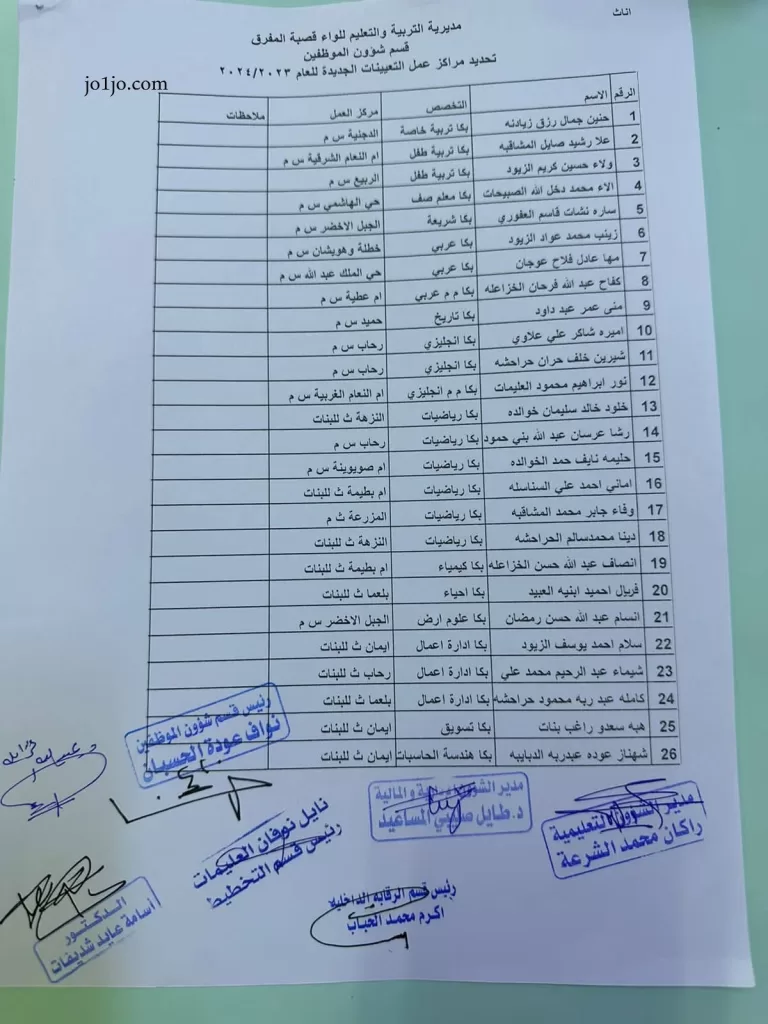 اناث
مديرية التربية والتعليم للواء قصبة المفرق
قسم شؤون الموظفين
تحديد مراكز عمل التعيينات الجديدة للعام ٢٠٢٤/٢٠٢٣
jo1jo.com
الرقم الاسم التخصص مركز العمل ملاحظات
1 حنين جمال رزق زيادنه بكا تربية خاصة الدجنية س م
2 علا رشيد صايل المشاقبه بكا تربية طفل ام النعام الشرقية س م
3 ولاء حسين كريم الزيود بكا تربية طفل الربيع س م
4 الاء محمد دخل الله الصبيحات بكا معلم صف حي الهاشمي س م
5 ساره نشات قاسم العفوري بكا شريعة الجبل الاخضر س م
6 زينب محمد عواد الزيود بكا عربي خطلة وهويشان س م
7 مها عادل فلاح عوجان بكا عربي حي الملك عبد الله س م
8 كفاح عبد الله فرحان الخزاعله بكا م م عربي ام عطية س م
9 منى عمر عبد داود بكا تاريخ حميد س م
10 اميره شاكر علي علاوي بكا انجليزي رحاب س م
11 شيرين خلف حران حراحشه بكا انجليزي رحاب س م
12 نور ابراهيم محمود العليمات بكا م م انجليزي ام النعام الغربية س م
13 خلود خالد سليمان خوالده بكا رياضيات النزهة ث للبنات
14 رشا عرسان عبد الله بني حمود بكا رياضيات رحاب س م
15 حليمه نايف حمد الخوالده بكا رياضيات ام صويوينة س م
16 اماني احمد علي السناسله بكا رياضيات ام بطيمة ث للبنات
17 وفاء جابر محمد المشاقبه بكا رياضيات المزرعة ث م
18 دينا محمدسالم الحراحشه بكا رياضيات النزهة ث للبنات
19 انصاف عبد الله حسن الخزاعله بكا كيمياء ام بطيمة ث للبنات
20 فريال احميد ابنيه العبيد بكا احياء بلعما ث للبنات
21 انسام عبد الله حسن رمضان بكا علوم ارض الجبل الاخضر س م
22 سلام احمد يوسف الزيود بكا ادارة اعمال ايمان ث للبنات
23 شيماء عبد الرحيم محمد علي بكا ادارة اعمال رحاب ث للبنات
24 كامله عبد ربه محمود حراحشه بكا ادارة اعمال بلعما ث للبنات
25 هبه سعدو راغب بنات بكا تسويق ايمان ث للبنات
26 شهناز عوده عبدربه الدبايبه بكا هندسة الحاسبات ايمان ث للبنات
رئيس قسم شؤون الموظفين
نواف عودة الحسبان
مدير الشؤون والمالية
د. طايل المساعيد
مدير الشؤون التعليمية
راكان محمد الشرعة
نايل نوفان العليمات
رئيس قسم التخطيط
رئيس قسم الرقابه الداخليه
اكرم محمد الحباب
الدكتور
أسامة عايد شديفات